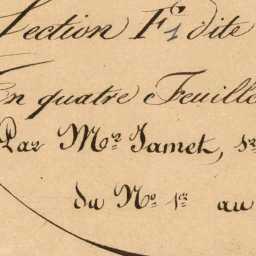 Section F 1 dite
En quatre Feuille
Par Mr. Jamet,
du No. 1er au